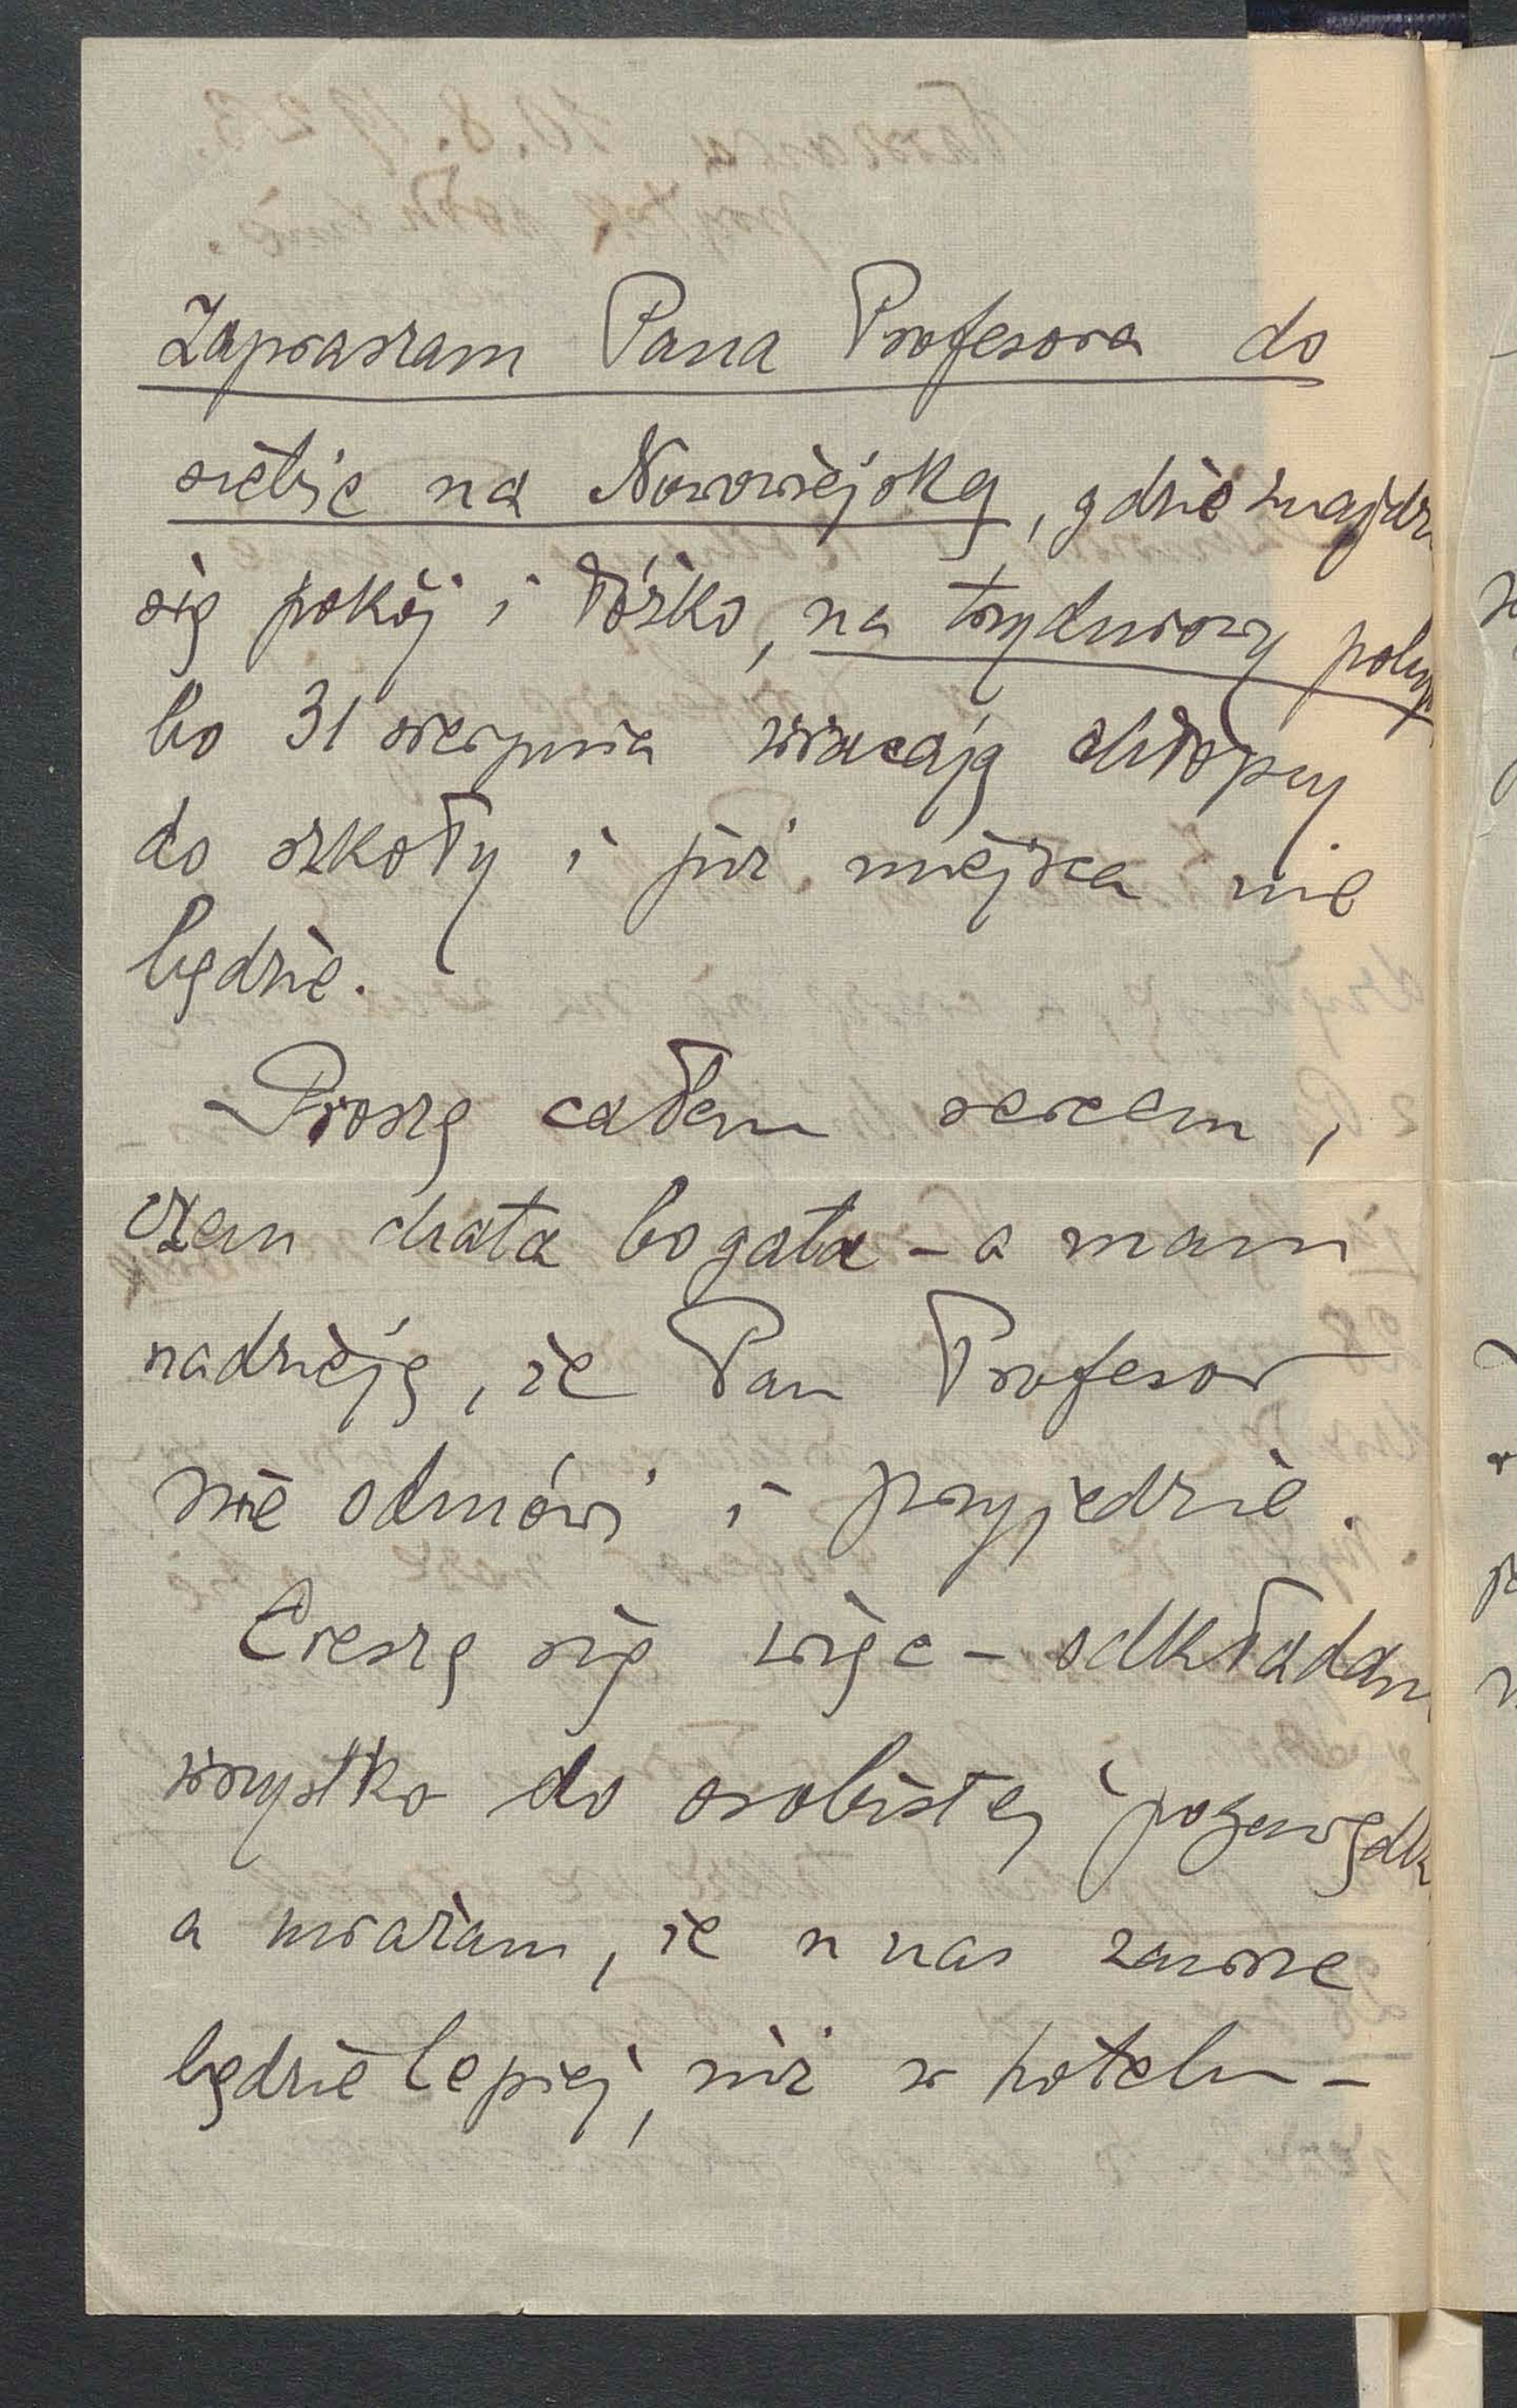 Zapraszam Pana Profesora do
siebie na Nowowiejską, gdzie znajdzi
się pokój i łóżko, na trzydniowy pobyt
bo 31 sierpnia wracają chłopcy
do szkoły i już miejsca nie
będzie.
Proszę całem sercem,
czem chata bogata – a mam
nadzieję, że Pan Profesor
nie odmówi i przyjedzie.
Cieszę się więc – odkładam
wszystko do osobistej pogawędki
a uważam, że u nas zawsze
będzie lepiej, niż w hotelu –